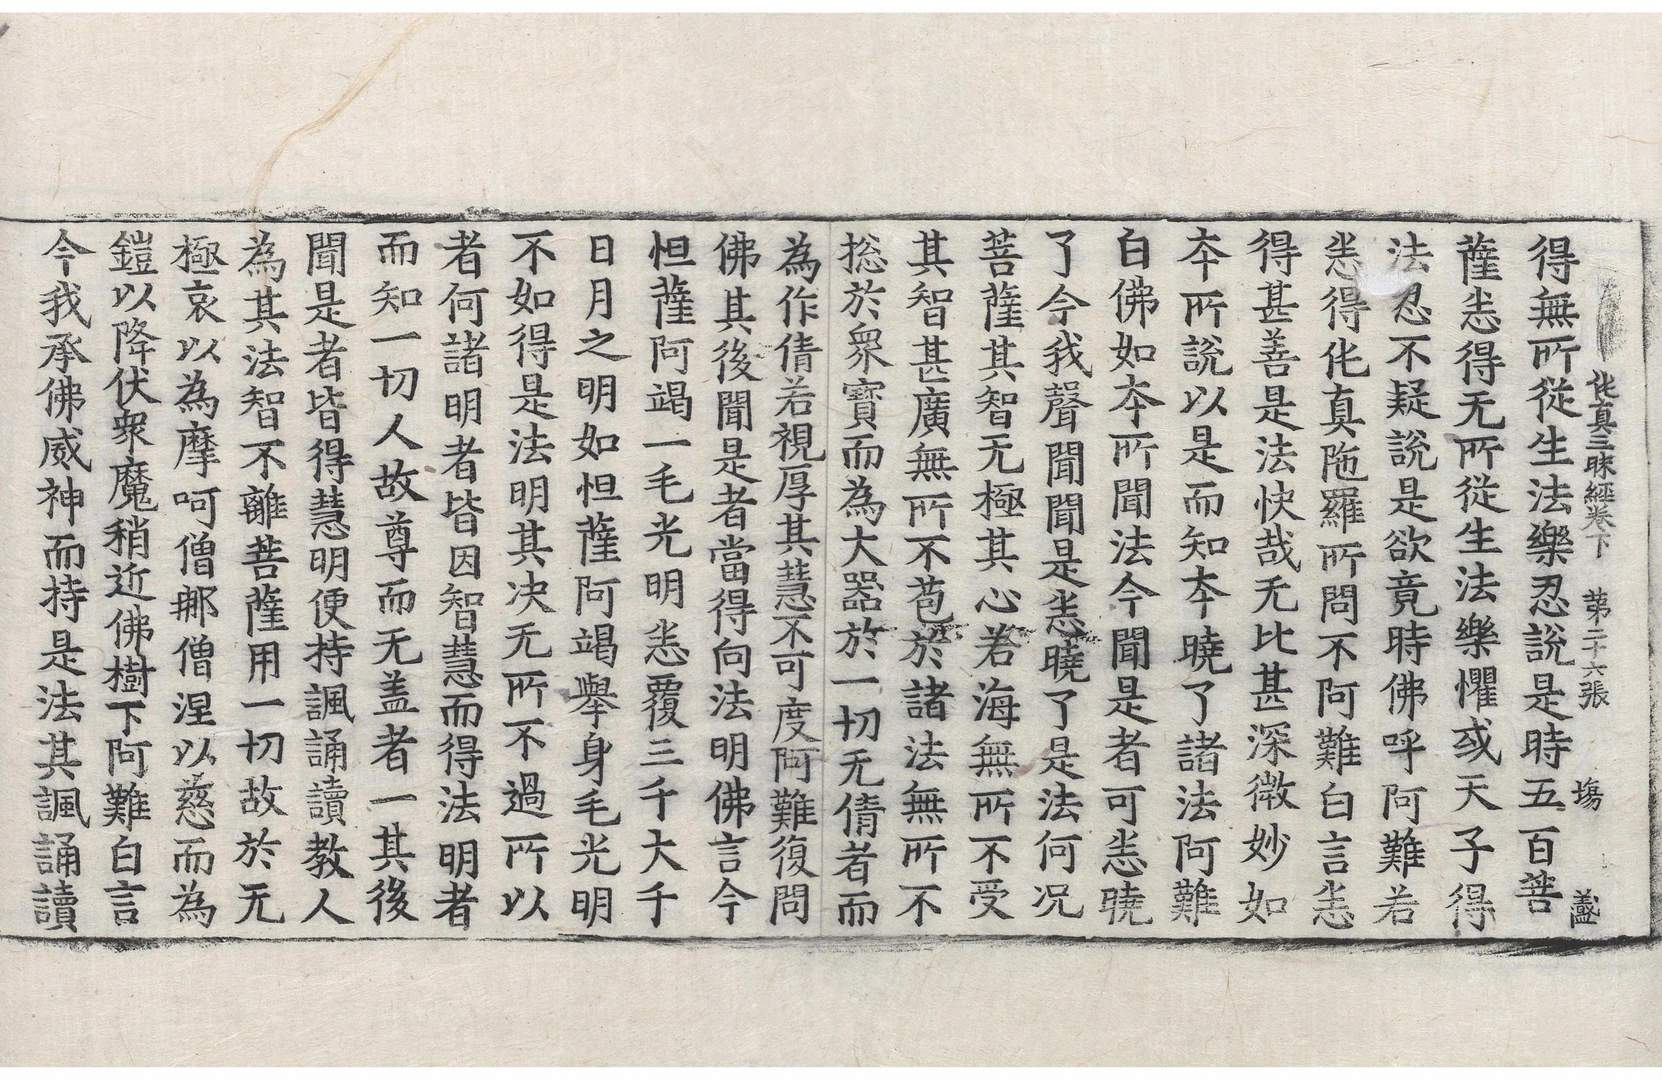 伅真三昧經卷下　第二十六張　塲　盡
得無所從生法樂忍說是時五百菩
薩㤙得无所從生法樂懼或天子得
法忍不疑說是欲竟時佛呼阿難若
㤙得伅真陁羅所問不阿難白言㤙
得甚善是法快哉无比甚深微妙如
夲所說以是而知夲曉了諸法阿難
白佛如夲所聞法今聞是者可㤙曉
了今我聲聞聞是㤙曉了是法何况
菩薩其智无極其心若海無所不受
其智甚廣無所不苞於諸法無所不
揔於衆寶而為大器於一切无倩者而
為作倩若視厚其慧不可度阿難復問
佛其後聞是者當得向法明佛言今
怛薩阿竭一毛光明㤙覆三千大千
日月之明如怛薩阿竭舉身毛光明
不如得是法明其決无所不過所以
者何諸明者皆因智慧而得法明者
而知一切人故尊而无盖者一其後
聞是者皆得慧明便持諷誦讀教人
為其法智不離菩薩用一切故於无
極哀以為摩呵僧那僧涅以慈而為
鎧以降伏衆魔稍近佛樹下阿難白言
今我承佛威神而持是法其諷誦讀